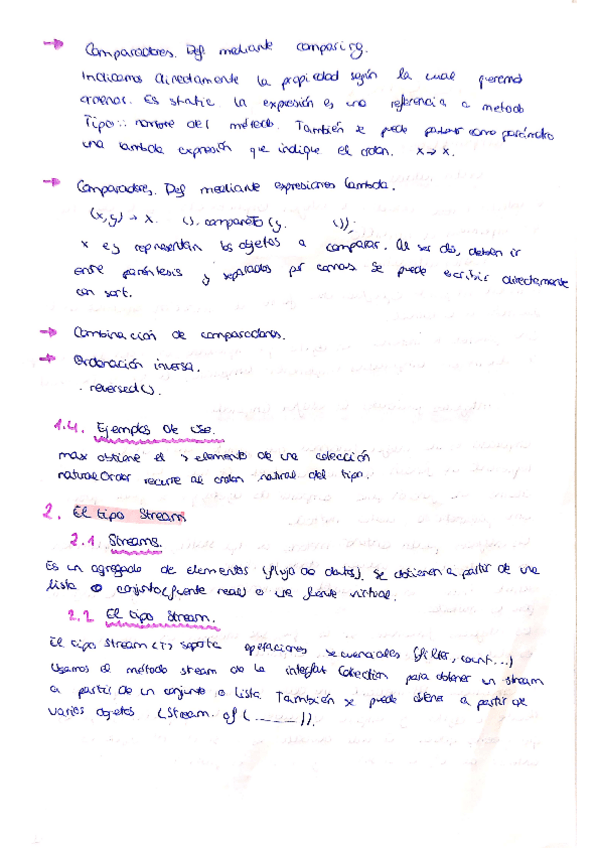 → Comparadores. Def mediante comparing.
Indicamos directamente la propiedad según la cual queremos
ordenar. Es static. La expresión es una referencia a método
Tipo:: nombre del método. También se puede pasar como parámetro
una lambda expresión que indique el orden. x → x.
→ Comparadores. Def mediante expresiones lambda.
(x,y) → x. (). compareTo (y. ());
x e y representan los objetos a comparar. Al ser dos, deben ir
entre paréntesis y separados por comas. Se puede escribir directamente
con sort.
→ Combinación de comparadores.
→ Ordenación inversa.
. reversed().
1.4. Ejemplos de uso.
max obtiene el > elemento de una colección
naturalOrder recurre al orden natural del tipo.
2. El tipo Stream
2.1. Streams.
Es un agregado de elementos (flujo de datos). Se obtienen a partir de una
lista o conjunto (fuente real) o una fuente virtual.
2.2 El tipo Stream.
El tipo Stream<T> soporta operaciones secuenciales (filter, count...)
Usamos el método stream de la interfaz Collection para obtener un stream
a partir de un conjunto o lista. También se puede obtener a partir de
varios objetos (Stream. of ( ______ )).